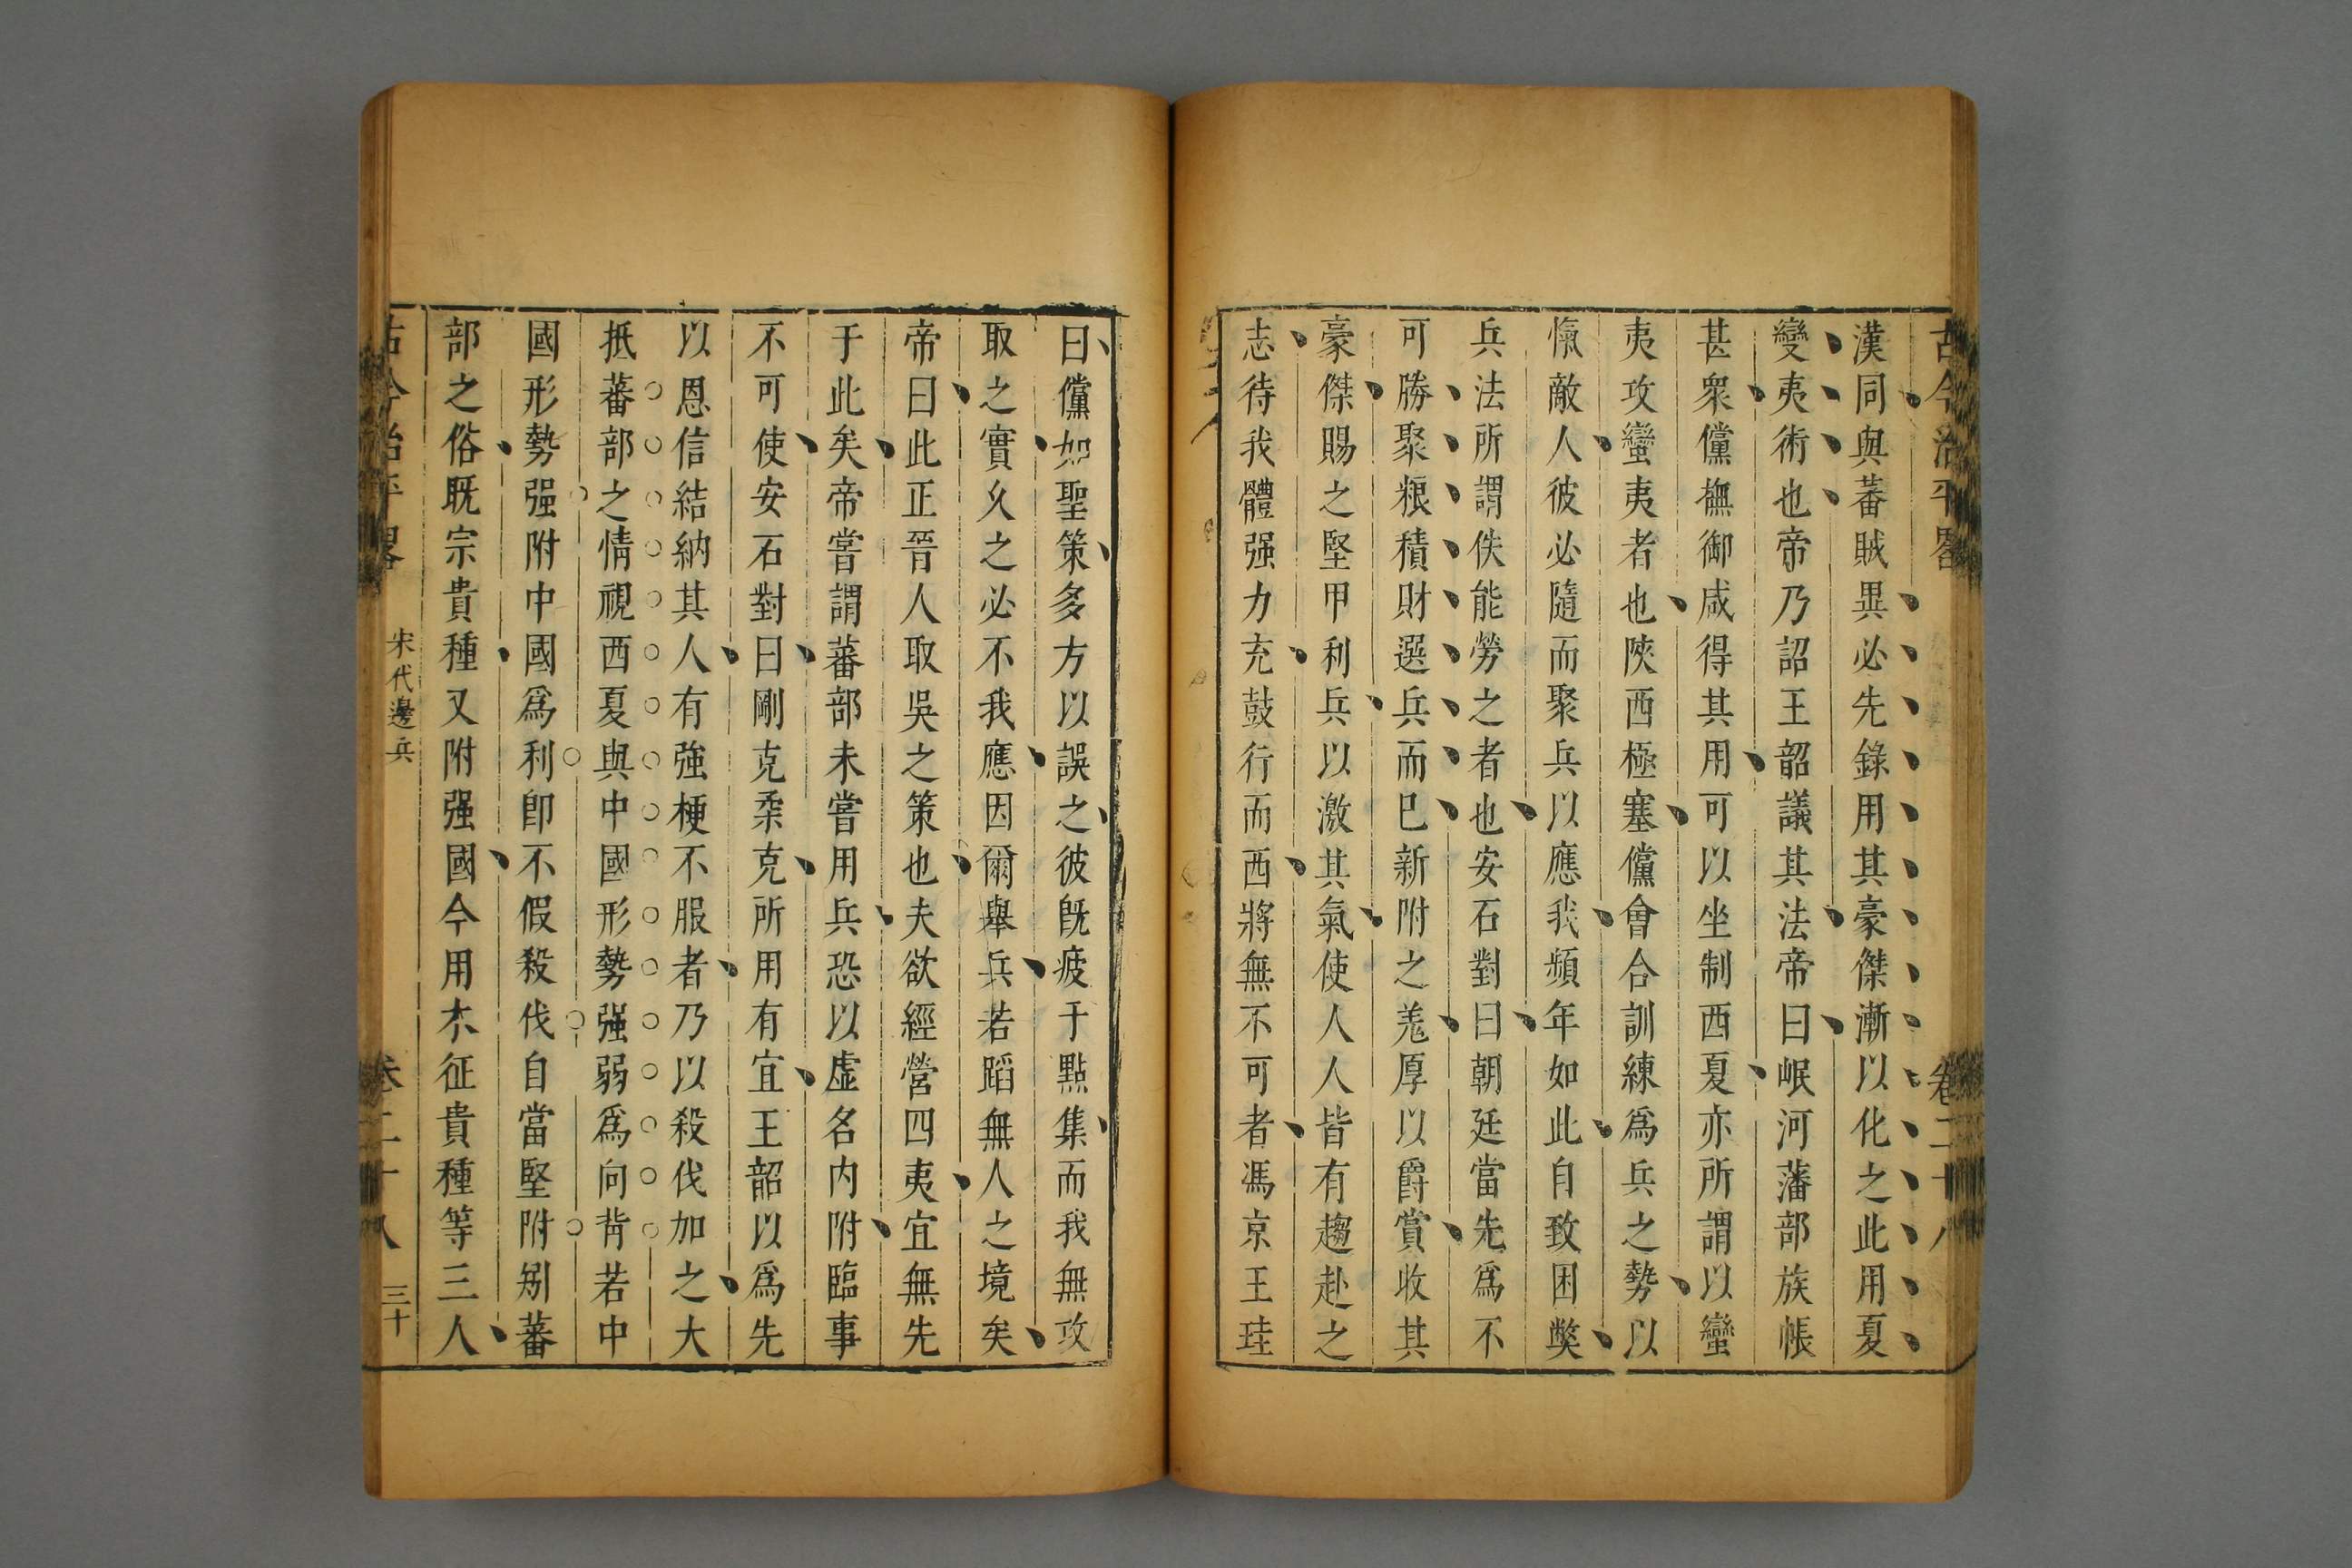 古今治平畧 卷二十八
漢同與蕃賊異必先錄用其豪傑漸以化之此用夏
變夷術也帝乃詔王韶議其法帝曰岷河藩部族帳
甚衆儻撫御咸得其用可以坐制西夏亦所謂以蠻
夷攻蠻夷者也陝西極塞儻會合訓練爲兵之勢以
愾敵人彼必隨而聚兵以應我頻年如此自致困獘
兵法所謂佚能勞之者也安石對曰朝廷當先爲不
可勝聚粮積財選兵而巳新附之羗厚以爵賞收其
豪傑賜之堅甲利兵以激其氣使人人皆有趨赴之
志待我體强力充鼓行而西將無不可者馮京王珪
曰儻如聖策多方以誤之彼旣疲于㸃集而我無攻
取之實久之必不我應因爾舉兵若蹈無人之境矣
帝曰此正晉人取吳之策也夫欲經營四夷宜無先
于此矣帝嘗謂蕃部未嘗用兵恐以虛名内附臨事
不可使安石對曰剛克柔克所用有宜王韶以爲先
以恩信結納其人有強梗不服者乃以殺伐加之大
抵蕃部之情視西夏與中國形勢强弱爲向背若中
國形勢强附中國爲利卽不假殺伐自當堅附矧蕃
部之俗旣宗貴種又附强國今用木征貴種等三人
古今治平畧 宋代邊兵 卷二十八 三十